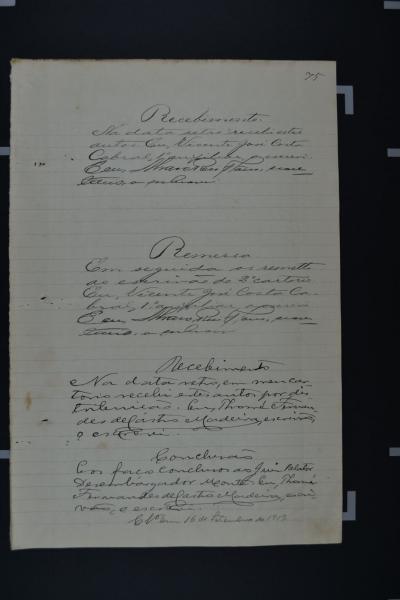 75
Recebimento.
Na data retro recebi estes
autos. Eu, Vicente José Costa
Cabral, 1º auxiliar, o escrevi.
E eu,
o subscrevi.
Remessa
Em seguida os remetto
ao escrivão do 2º cartorio.
Eu, Vicente José Costa Ca-
bral, 1º auxiliar, o escrevi.
E eu,
o subscrevi.
Recebimento
Na data retro, em meu car-
torio recebi estes autos por dis-
tribuição. Eu, Thomé Fernan-
des de Castro Madeira, escrivão,
o escrevi.
Conclusão
Os faço conclusos ao Juiz Relator
Desembargador Montes. Eu, Thomé
Fernandes de Castro Madeira, escri-
vão, o escrevi.
Clºs em 16 de Setembro de 1913